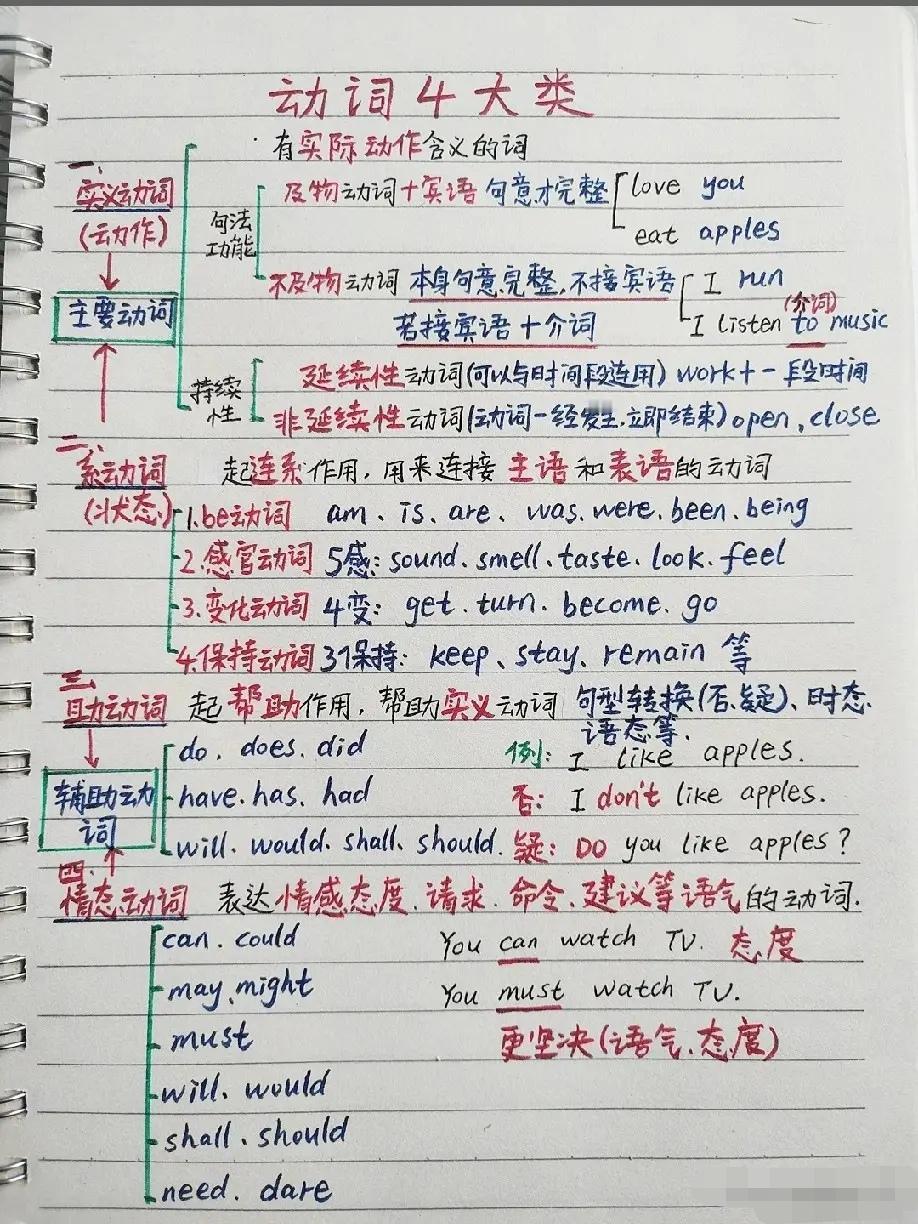 动词4大类
一、
·有实际动作含义的词
实义动词
(动作)
主要动词
句法功能
及物动词+宾语 句意才完整
love you
eat apples
不及物动词 本身句意完整,不接宾语
若接宾语+介词
I run
(介词)
I listen to music
持续性
延续性动词(可以与时间段连用) work+一段时间
非延续性动词(动词一经发生,立即结束) open、close
二、
系动词 起连系作用,用来连接主语和表语的动词
(状态)
1.be动词 am、is、are、was、were、been、being
2.感官动词 5感:sound、smell、taste、look、feel
3.变化动词 4变:get、turn、become、go
4.保持动词 3个保持:keep、stay、remain 等
三、
助动词 起帮助作用,帮助实义动词 句型转换(否、疑)、时态、
语态等.
辅助动词
do、does、did
例:I like apples.
have、has、had
否:I don't like apples.
will、would、shall、should.
疑:Do you like apples?
四、
情态动词 表达情感态度、请求、命令、建议等语气的动词.
can、could
You can watch TV. 态度
may、might
You must watch TV.
must
更坚决(语气、态度)
will、would
shall、should
need、dare